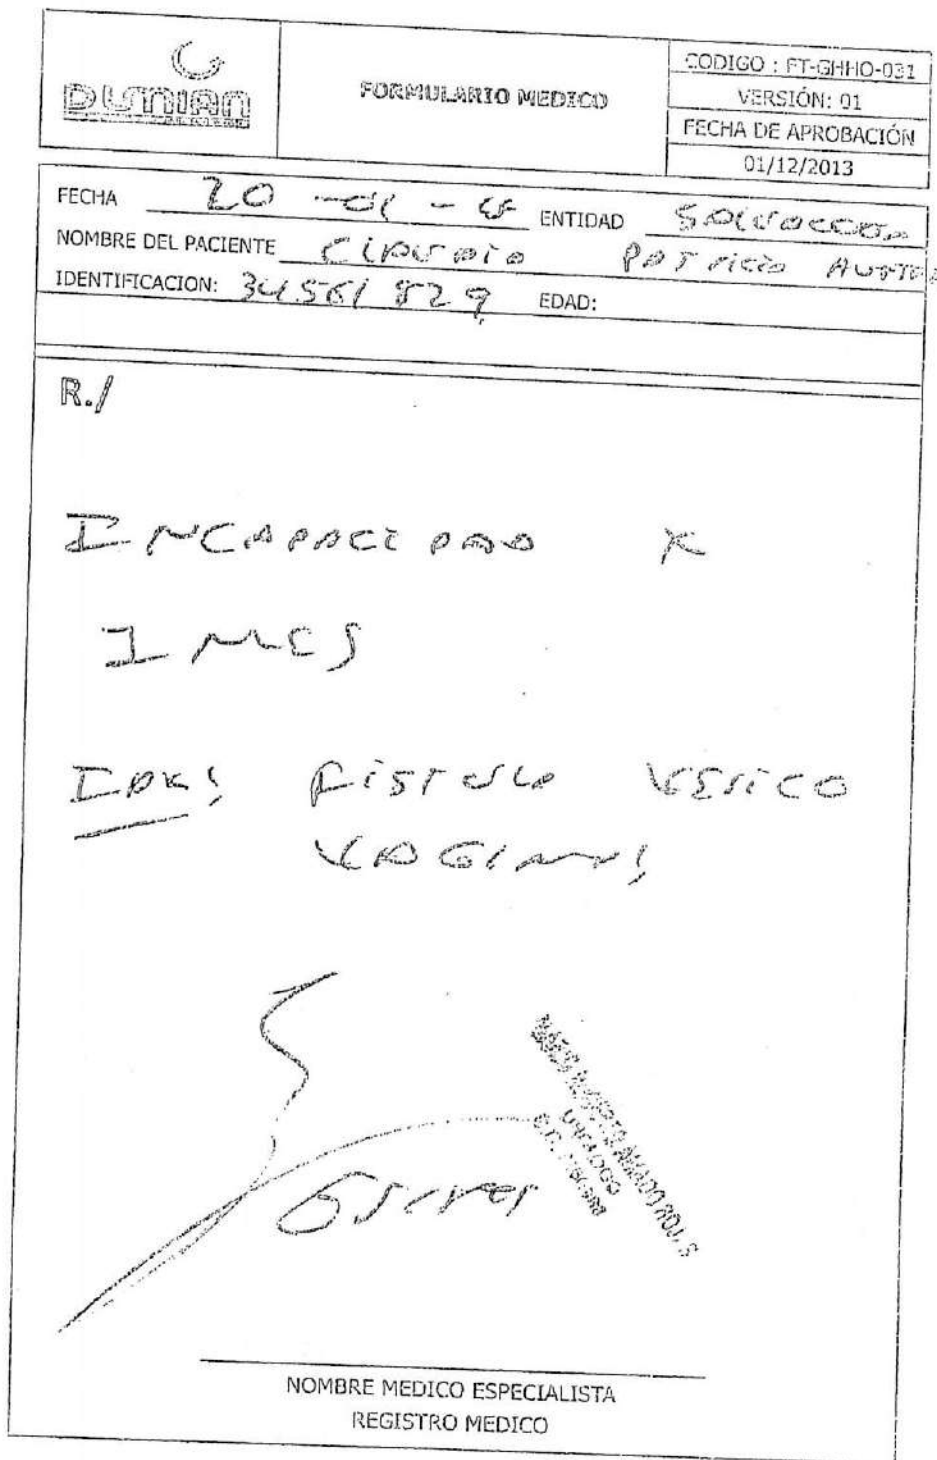 DUMIAN
FORMULARIO MEDICO
CODIGO : FT-GHHO-031
VERSIÓN: 01
FECHA DE APROBACIÓN
01/12/2013
FECHA 20 -01 - ENTIDAD
NOMBRE DEL PACIENTE CLAUDIA PATRICIA
IDENTIFICACION: 34561829 EDAD:
R./
INCAPACIDAD X
1 MES
IDX: FISTULA VESICO
VAGINAL
UROLOGO
NOMBRE MEDICO ESPECIALISTA
REGISTRO MEDICO